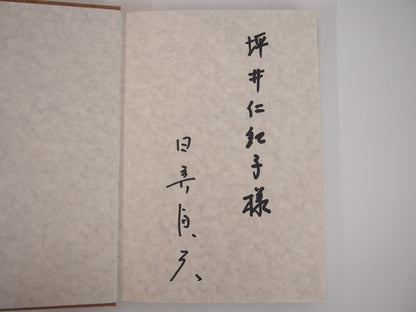 坪井仁紀子様
日美貞夫